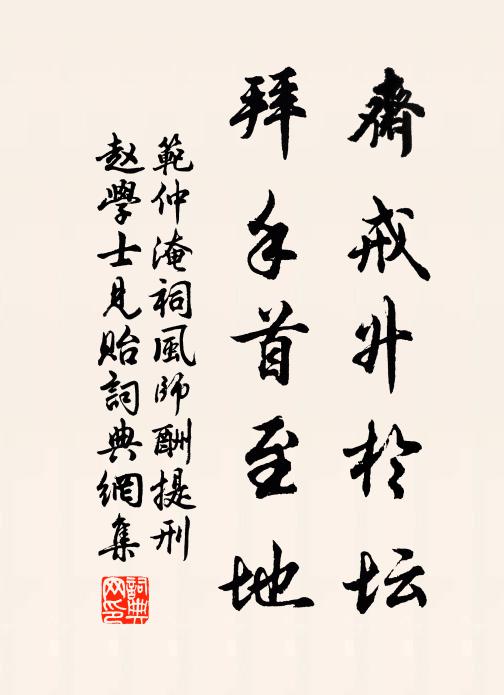 齋戒升於坛
拜手首至地
範仲淹祠風師酬提刑
赵學士見貽詞典網集
詞典网印